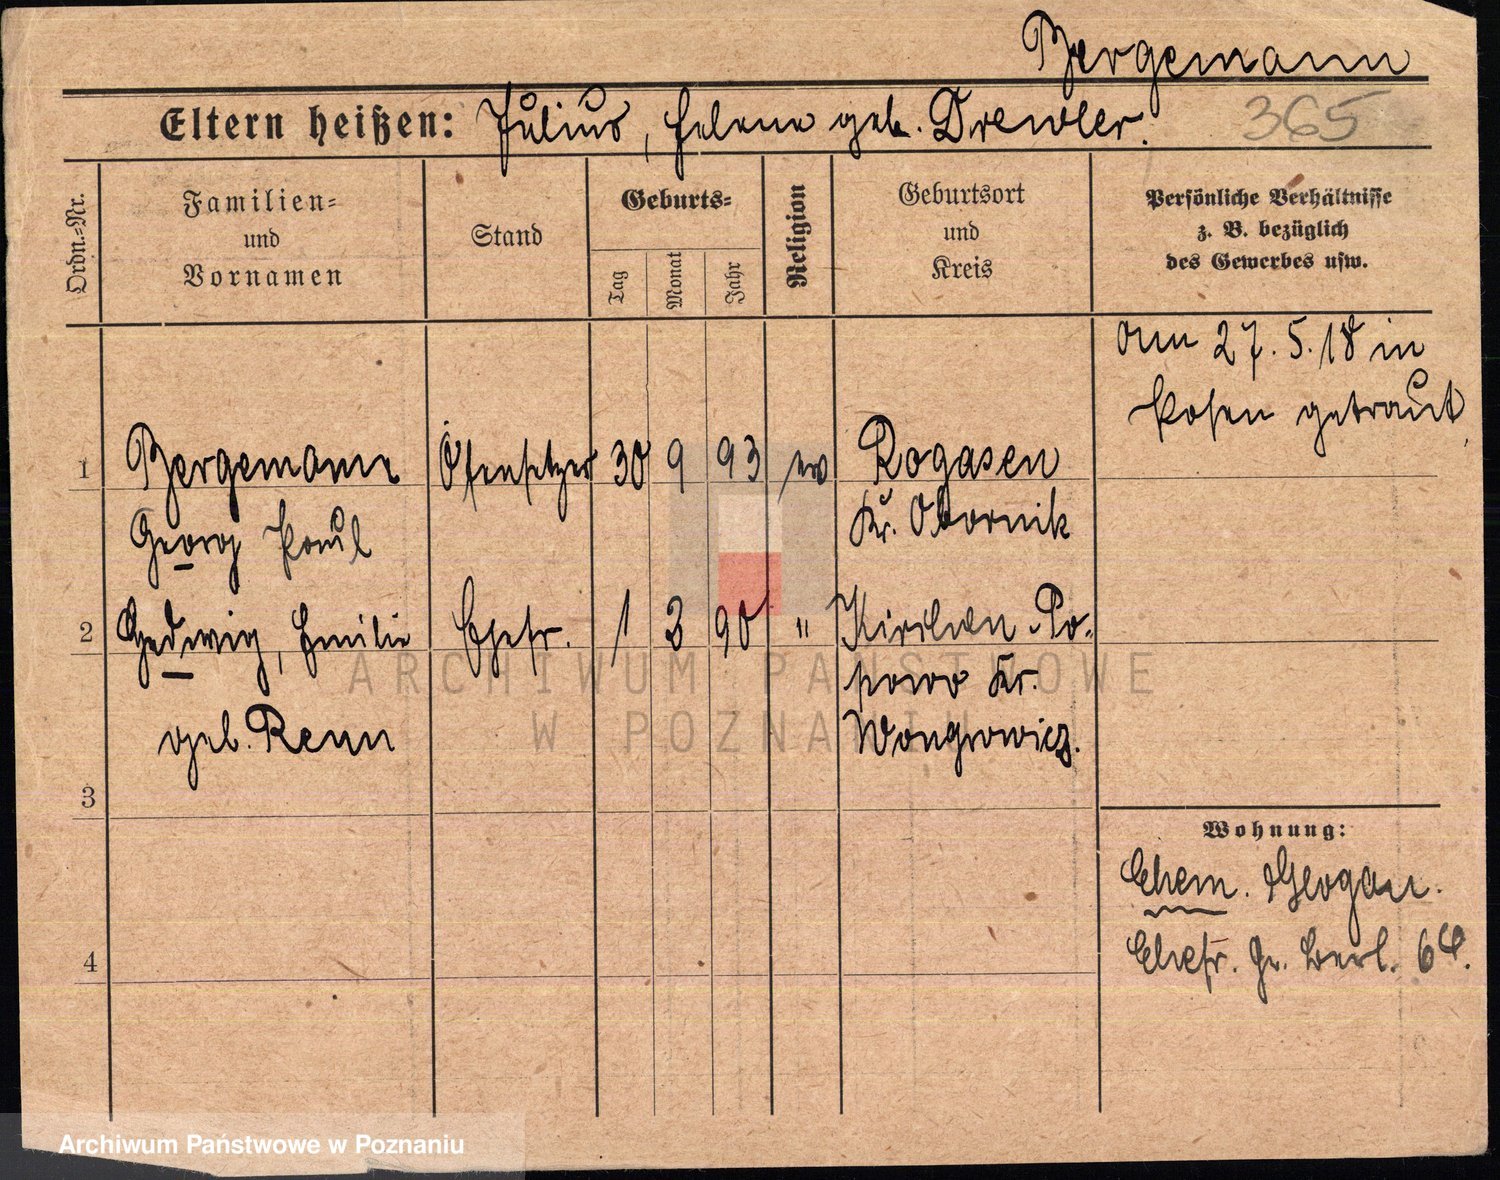 Bergemann
Eltern heißen: Julius, Helene geb. Drewler.
365
Ordn.-Nr.
Familien- und Vornamen
Stand
Geburts-
Tag
Monat
Jahr
Religion
Geburtsort und Kreis
Persönliche Verhältnisse
z. B. bezüglich
des Gewerbes usw.
am 27. 5. 18 in
Posen getraut
1 Bergemann Ofensetzer 30 9 93 ev Rogasen
Georg Paul Kr. Obornik
2 Hedwig, Emilie Ehefr. 1 3 90 " Kirchen-Po-
powo Kr.
geb. Renn Wongrowicz.
3
4
Wohnung:
Ehem. Glogau.
Ehefr. Gr. Berl.
ARCHIWUM PAŃSTWOWE
W POZNANIU
Archiwum Państwowe w Poznaniu